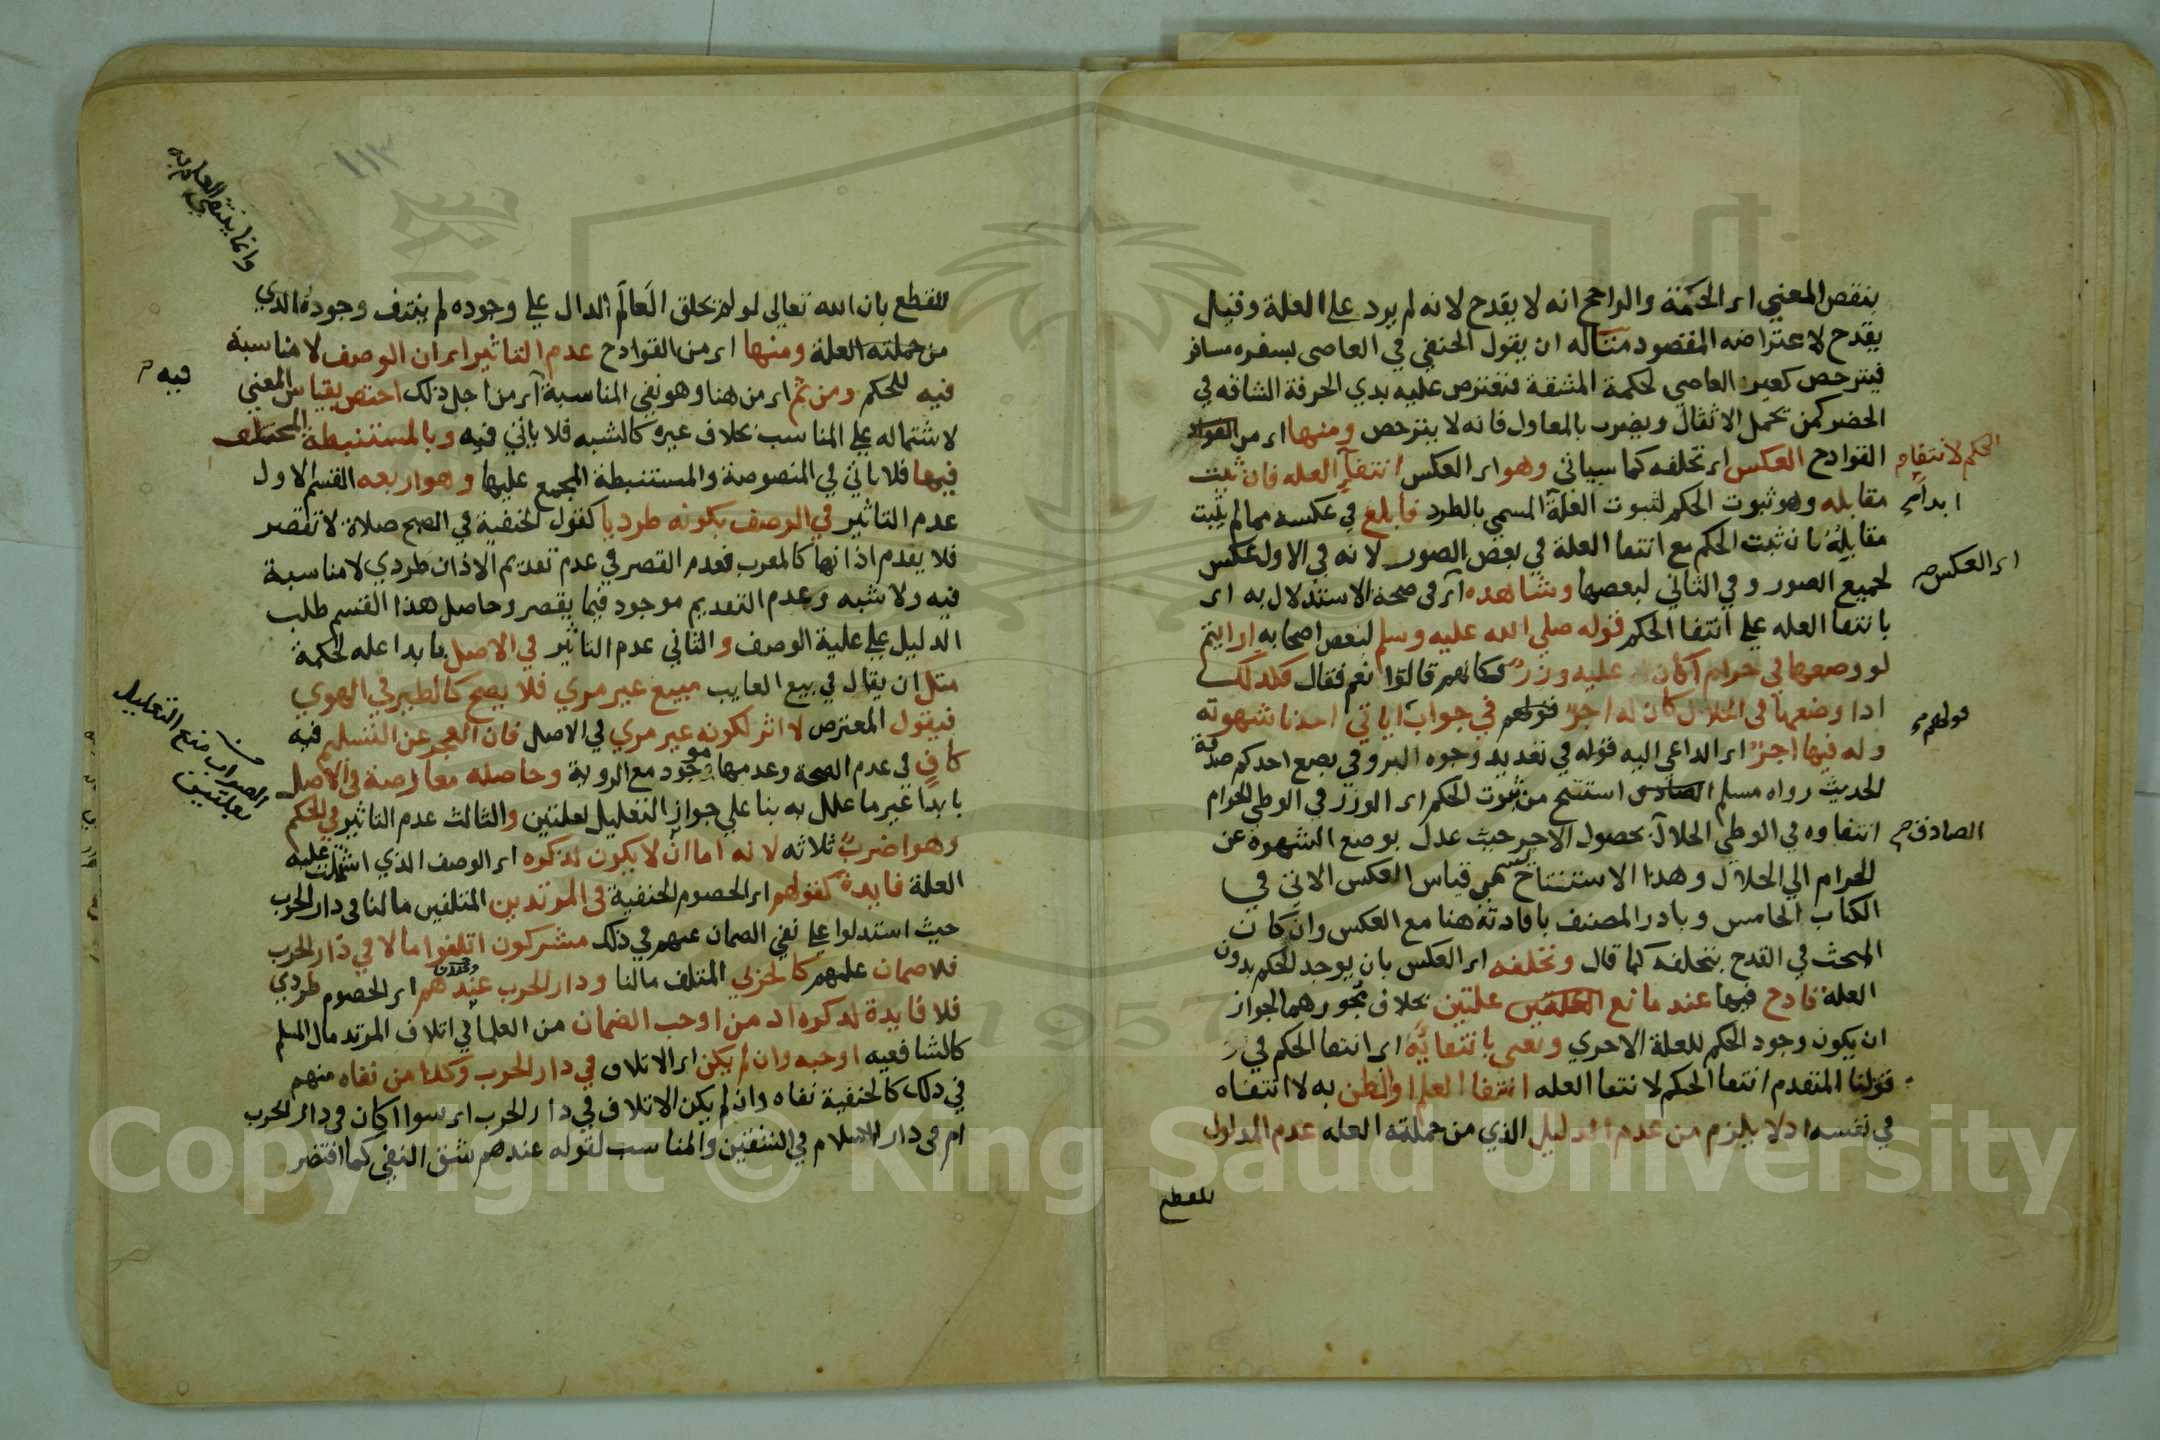 ينقض المعني اي الحكمة والراجح انه لا يقدح لانه لم يرد علي العلة وقيل
يقدح لاعتراضه المقصود مثاله ان يقول الحنفي في العاصي بسفره مسافر
فيترخص كغير العاصي لحكمة المشقة فيعترض عليه بذي الحرفة الشاقه في
الحضر كمن يحمل الاثقال ويضرب بالمعاول فانه لا يترخص ومنها اي من القواد
القوادح العكس اي تخلفه كما سياتي وهو اي العكس انتفآ العله فان ثبت
الحكم لانتفاء
مقابله وهو ثبوت الحكم لثبوت العلة المسمي بالطرد فابلغ في عكسه مما لم يثبت
ابدا
مقابله بان ثبت الحكم مع انتفا العلة في بعض الصور لانه في الاول عكس
لجميع الصور وفي الثاني لبعضها وشاهده اي في صحة الاستدلال به اي
اي العكس صح
بانتفا العله علي انتفا الحكم قوله صلي الله عليه وسلم لبعض اصحابه ارايتم
لو وضعها في حرام اكان عليه وزر فكانهم قالوا نعم فقال فكذلك
اذا وضعها في الحلال كان له اجر قولهم في جواب اياتي احدنا شهوته
قولهم
وله فيها اجر اي الداعي اليه قوله في تعديد وجوه البر وفي بضع احدكم صدقة
الحديث رواه مسلم الصادق استنتج من ثبوت الحكم اي الوزر في الوطي الحرام
انتفاوه في الوطي الحلال بحصول الاجر حيث عدل بوضع الشهوة عن
الصادق صح
الحرام الي الحلال وهذا الاستنتاج يسمي قياس العكس الاتي في
الكتاب الخامس وبادر المصنف بافادته هنا مع العكس وان كان
المبحث في القدح بتخلفه كما قال وتخلفه اي العكس بان يوجد الحكم بدون
العلة قادح فيها عند مانع علتين بخلاف مجوزهما لجواز
ان يكون وجود الحكم للعلة الاخري ونعني بانتفايه اي انتفا الحكم في
قولنا المتقدم انتفا الحكم لانتفا العله انتفا العلم او الظن به لا انتفاه
في نفسه اذ لا يلزم من عدم الدليل الذي من جملته العله عدم المدلول
للقطع
١١٣
وانما ينتفي العلم به
للقطع بان الله تعالي لو لم يخلق العالم الدال علي وجوده لم ينتف وجوده الذي
من جملته العلة ومنها اي من القوادح عدم التاثير اي ان الوصف لا مناسبة
فيه للحكم ومن ثم اي من هنا وهو نفي المناسبة اي من اجل ذلك اختص بقياس المعني
فيه
لاشتماله علي المناسب بخلاف غيره كالشبه فلا ياتي فيه وبالمستنبطة المختلف
فيها فلا ياتي في المنصوصة والمستنبطة المجمع عليها وهو اربعه القسم الاول
عدم التاثير في الوصف بكونه طرديا كقول الحنفية في الصبح صلاة لا تقصر
فلا يقدم اذانها كالمغرب فعدم القصر في عدم تقديم الاذان طردي لا مناسبة
فيه ولا شبه وعدم التقديم موجود فيما يقصر وحاصل هذا القسم طلب
الدليل علي علية الوصف والثاني عدم التاثير في الاصل بابدا عله لحكمة
مثل ان يقال في بيع الغايب مبيع غير مري فلا يصح كالطير في الهوي
فيقول المعترض لا اثر لكونه غير مري في الاصل فان العجز عن التسليم فيه
كاف في عدم الصحة وعدمها موجود مع الروية وحاصله معارضة في الاصل
الصواب منع التعليل بعلتين
بابدا غير ما علل به بنا علي جواز التعليل بعلتين والثالث عدم التاثير في الحكم
وهو اضرب ثلاثه لانه اما ان لا يكون لذكره اي الوصف الذي اشتملت عليه
العلة فايدة كقولهم اي الخصوم الحنفية في المرتدين المتلفين مالنا في دار الحرب
حيث استدلوا علي نفي الضمان عنهم في ذلك مشركون اتلفوا مالا في دار الحرب
فلا ضمان عليهم كالحربي المتلف مالنا ودار الحرب عندهم اي الخصوم طردي
فلا فايدة لذكره اذ من اوجب الضمان من العلما في اتلاف المرتد مال المسلم
كالشافعيه اوجبه وان لم يكن اي الاتلاف في دار الحرب وكذا من نفاه منهم
في ذلك كالحنفية نفاه وان لم يكن الاتلاف في دار الحرب اي سوا اكان في دار الحرب
ام في دار الاسلام في الشقين والمناسب لقوله عندهم شق النفي كما اقتصر